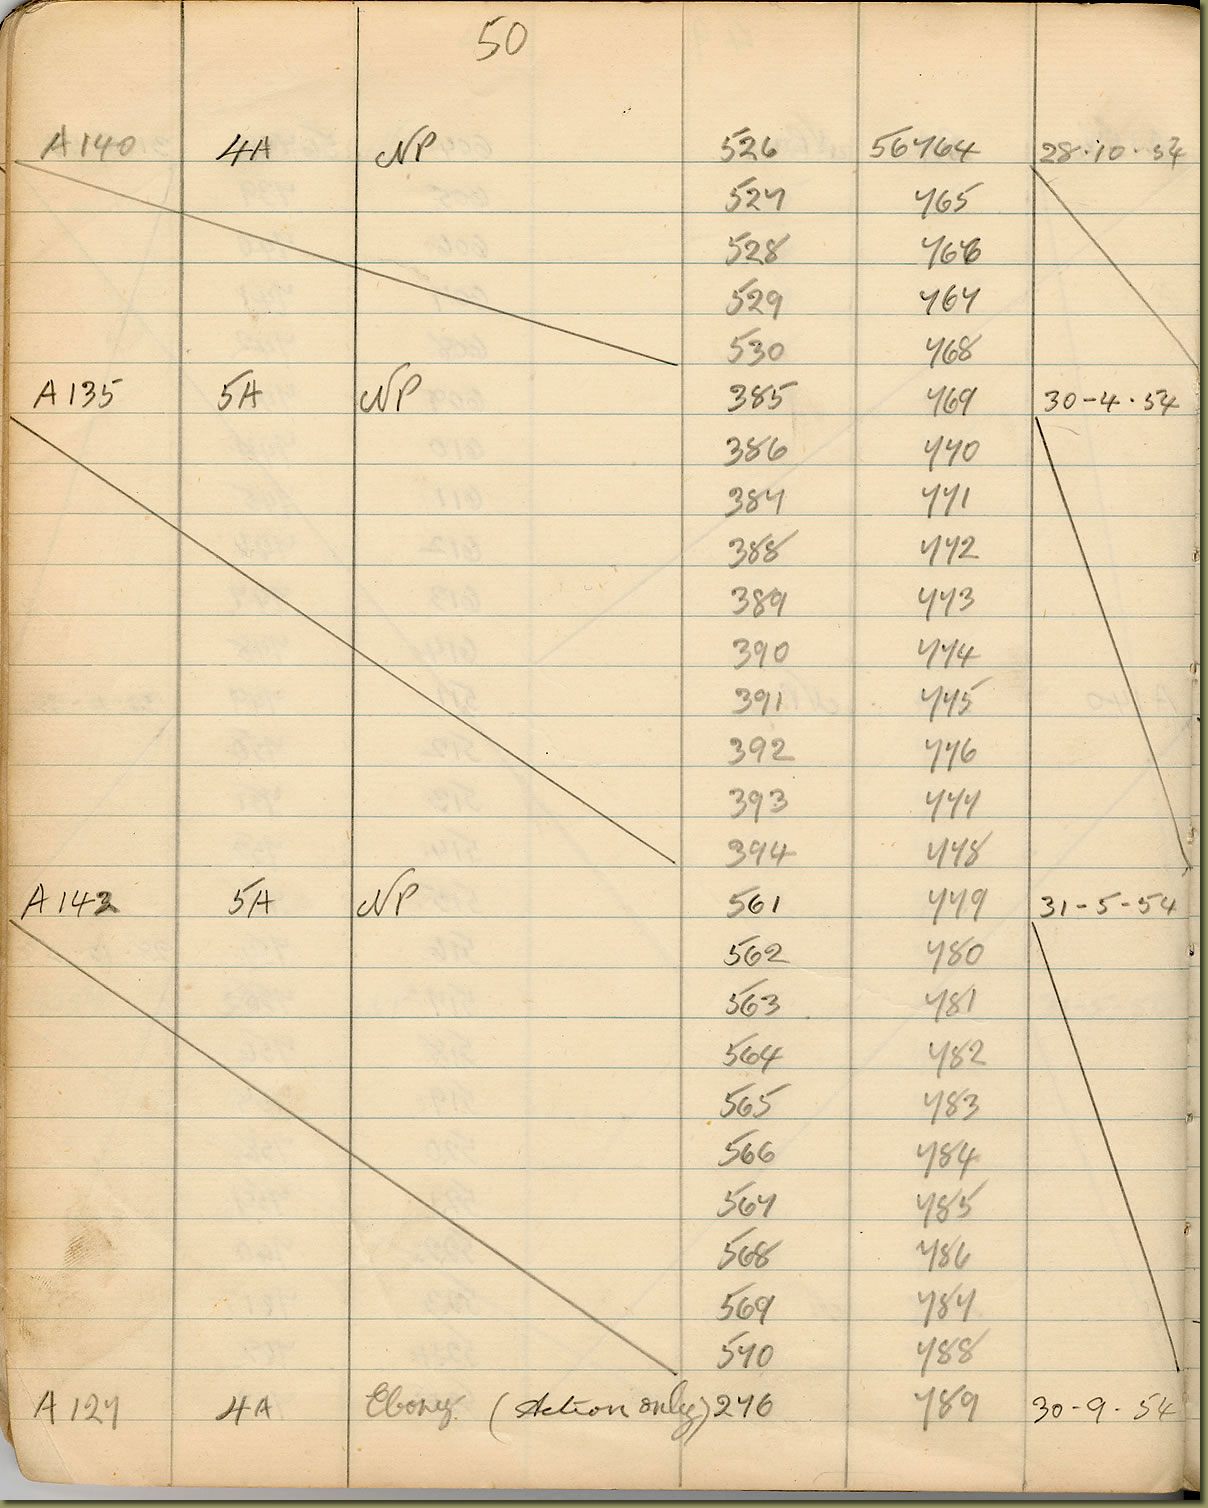 50
A 140 4A NP 526 56764 28·10·54
527 765
528 766
529 767
530 768
A 135 5A NP 385 769 30-4·54
386 770
387 771
388 772
389 773
390 774
391 775
392 776
393 777
394 778
A 142 5A NP 561 779 31-5-54
562 780
563 781
564 782
565 783
566 784
567 785
568 786
569 787
570 788
A 127 4A Ebony (Action only) 276 789 30-9-54